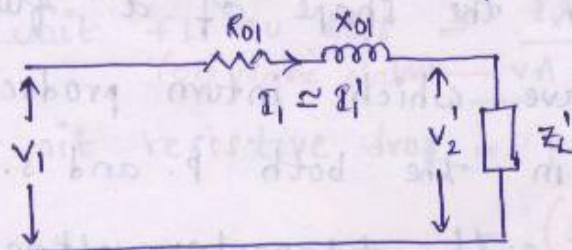 R01 X01
I1 ≃ I1'
V1
V2'
ZL'